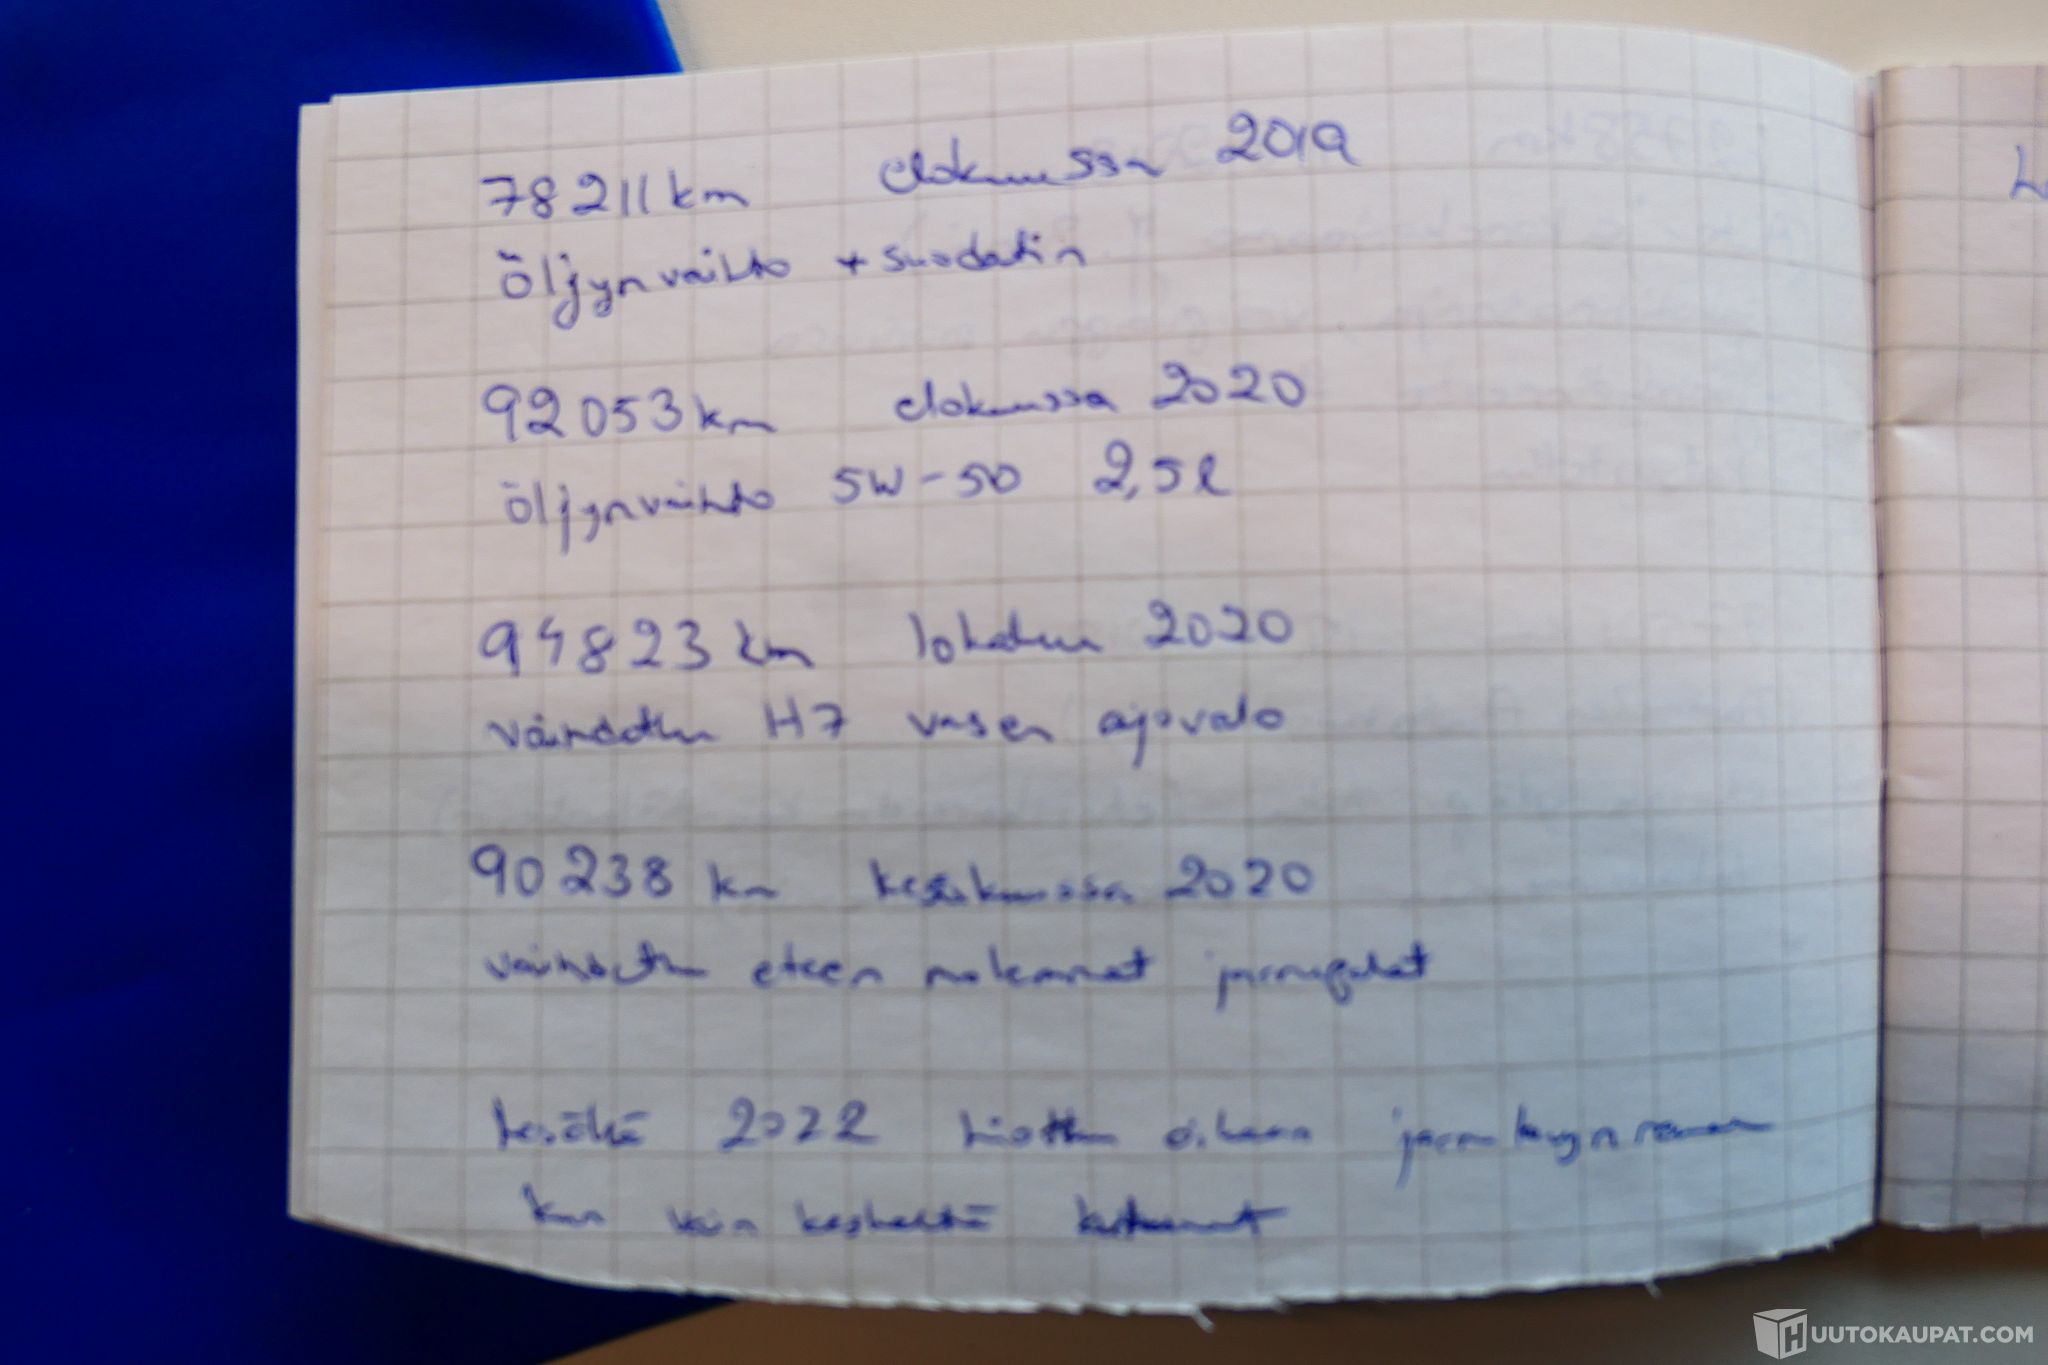 78211 km elokuussa 2019
öljynvaihto + suodatin
92053 km elokuussa 2020
öljynvaihto 5W-50 2,5l
94823 km lokakuu 2020
vaihdettu H7 vasen ajovalo
90238 km kesäkuussa 2020
vaihdettu eteen molemmat jarrupalat
2022 hiottu oikean
kun vain keskeltä
HUUTOKAUPAT.COM